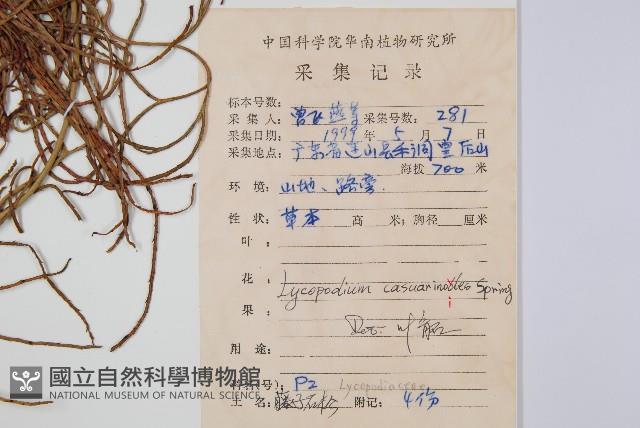 中国科学院华南植物研究所
采集记录
标本号数:
采集人: 采集号数: 281
采集日期: 1999年5月7日
采集地点: 广东省连山县 后山
海拔 700 米
环境: 山地、路旁.
性状: 草本 高 米; 胸径 厘米
叶:
花:
Lycopodium casuarinoides Spring
i
果:
Det.
用途:
P2 Lycopodiaceae
土名: 藤子石松 附记: 4份
國立自然科學博物館
NATIONAL MUSEUM OF NATURAL SCIENCE